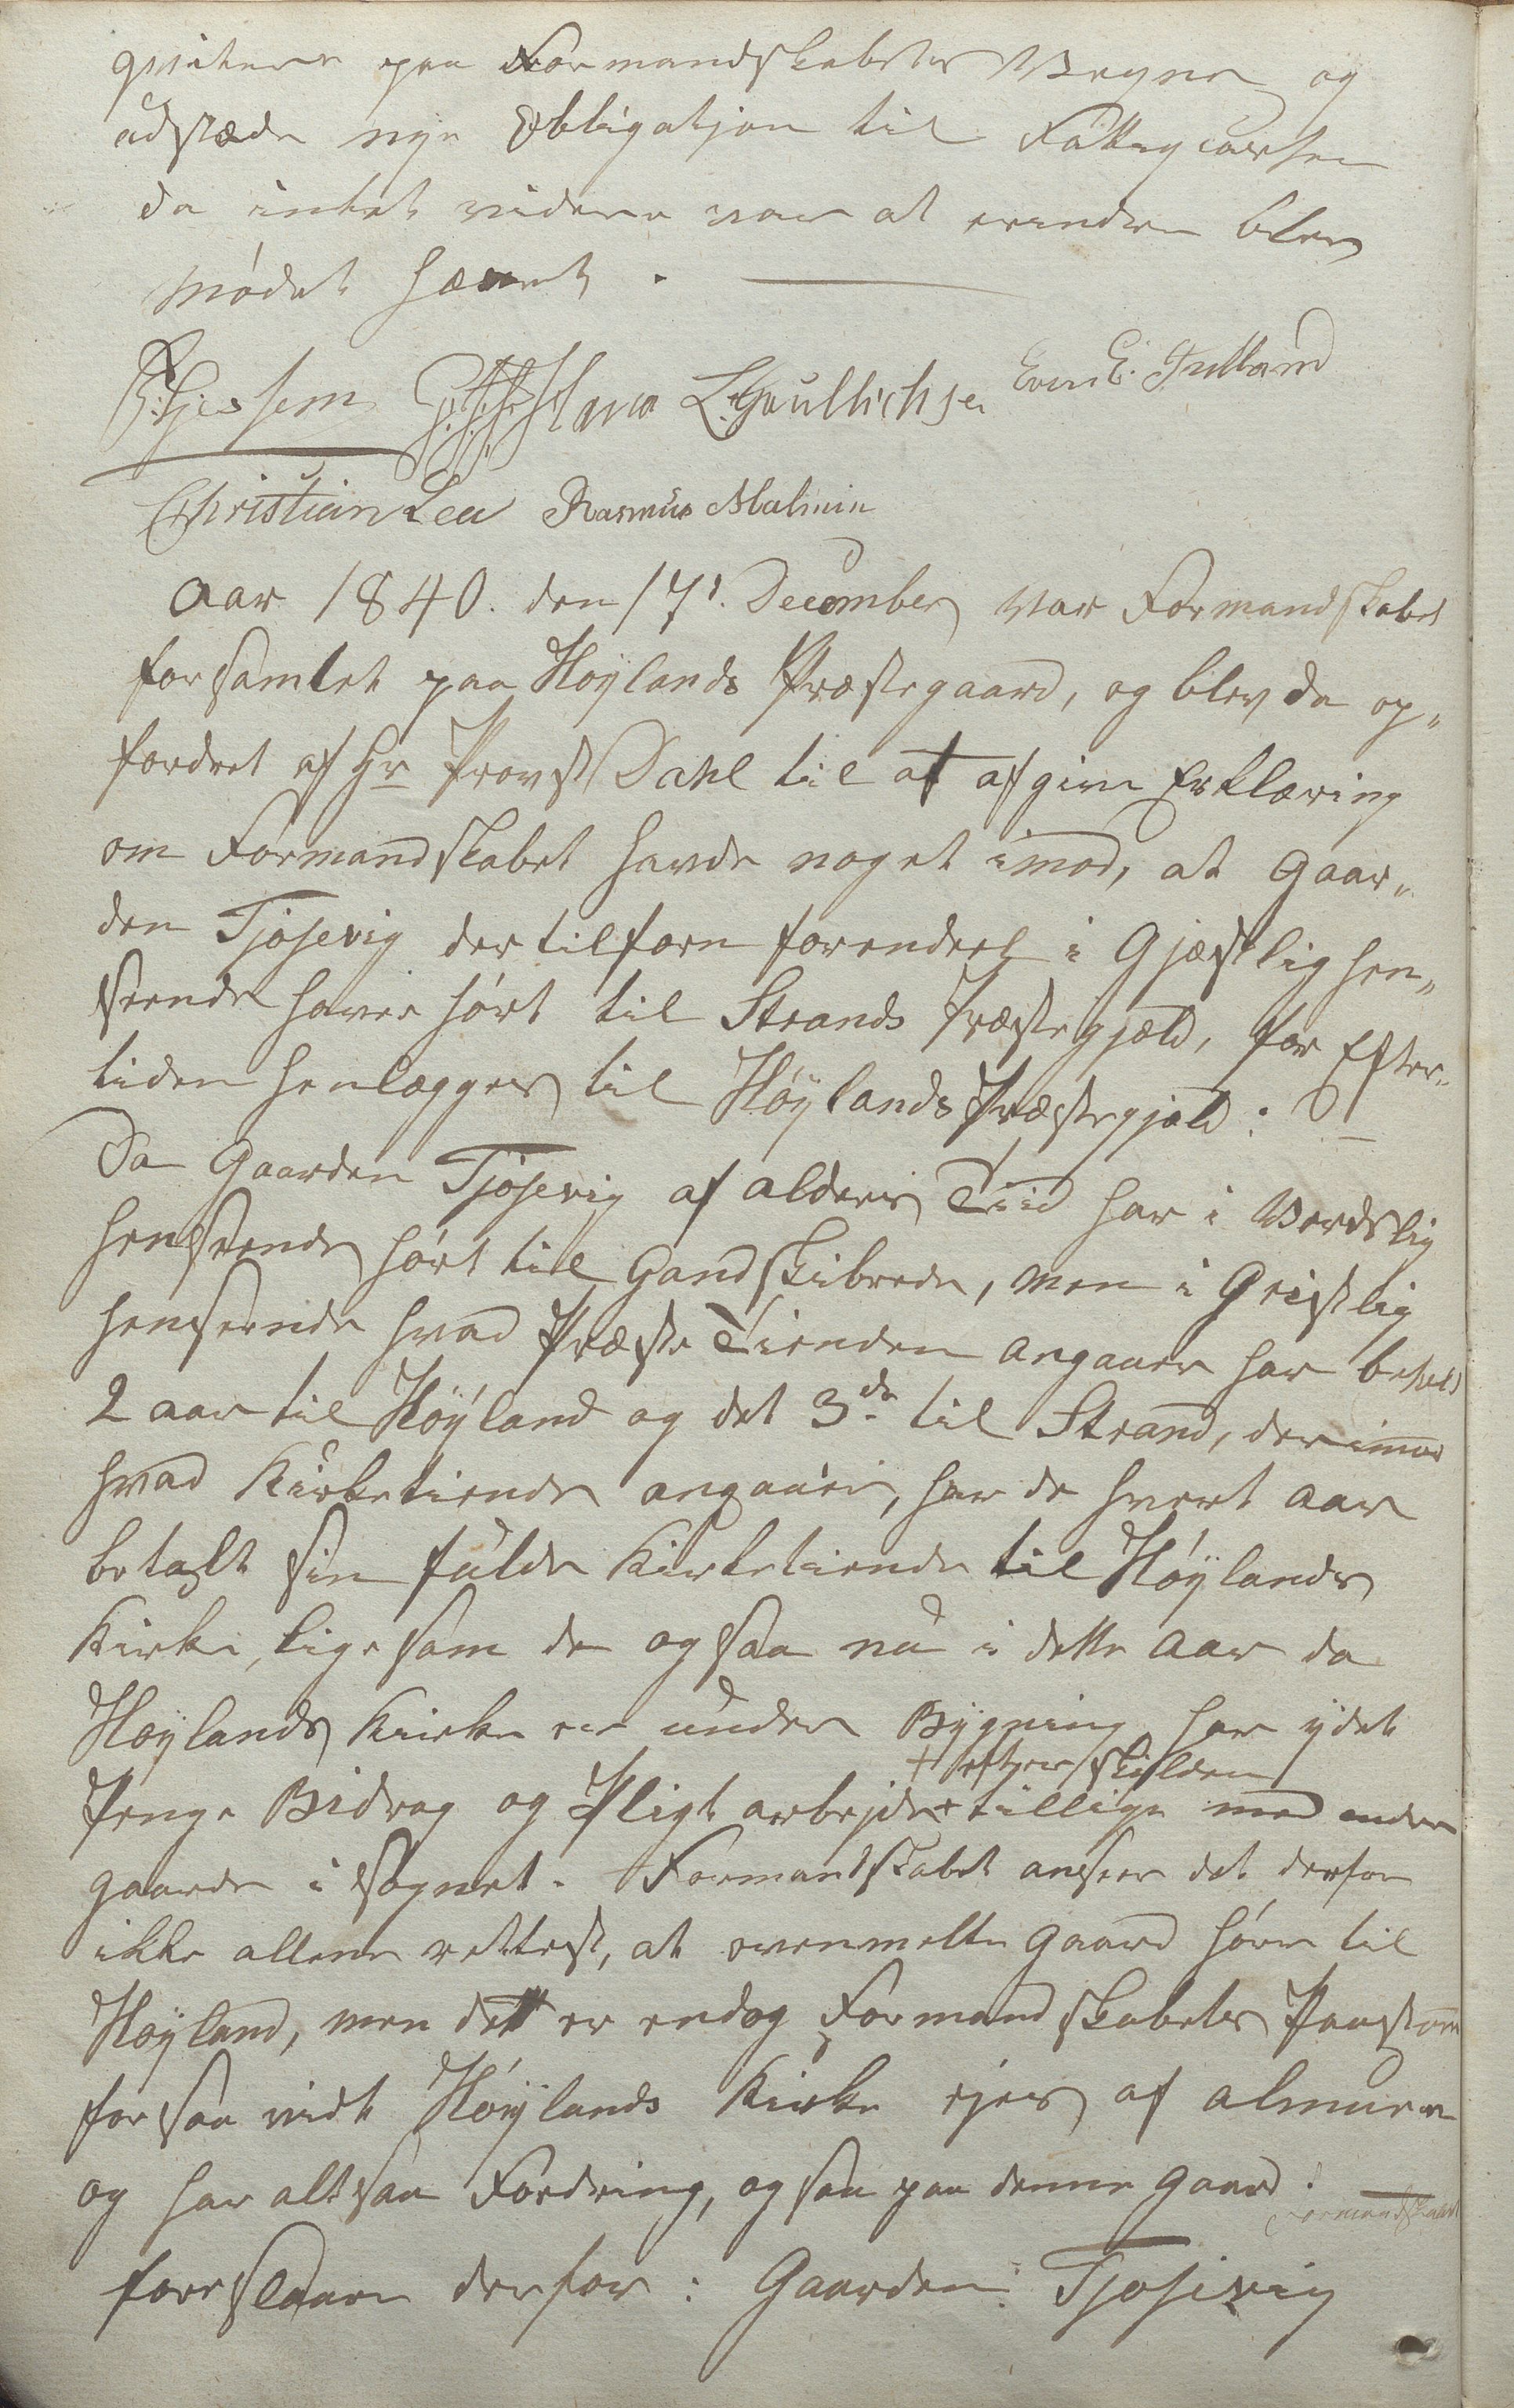 qvitere paa Formandskabets Vegne og
udstæde nye Obligatjon til Fattigcassen
da intet videre var at erindre blev
Mødet hævet.
L. Gullichsen Even E. Juttland
Christian Lea Rasmus Malmin
Aar 1840. den 17d. December var Formandskabet
forsamlet paa Høylands Præstegaard, og blev da op„
fordret af Hr Provst Dahl til at afgive Erklæring
om Formandskabet havde noget imod, at Gaar„
den Tjosevig der tilforn forendeel i Gjæstlig hen„
seende haver hørt til Strands Præstegjæld, for Efter„
tiden henlægges til Høylands Præstegjæld:
Da Gaarden Tjosevig af alders Tiid har i Verdslig
henseende hørt til Gandskibrede, men i Geistlig
henseende hvad Præste Tienden angaaer har betalt
2 aar til Høyland og det 3de til Strand, derimod
hvad Kirketiende angaaer, har de hvert aar
betalt sin fulde Kirketiende til Høylands
Kirke, lige som de og saa nu i dette aar da
Høylands Kirke er under Bygning har ydet
+ efter skylden
Penge Bidrag og Pligt arbejde + tillige med andre
gaarde i Sognet. Formandskabet anseer det derfor
ikke allene rettest, at ovenmelte gaard hører til
Høyland, men dett er endog Formandskabets Paastand
for saa vidt Høylands Kirke ejes af almuen
og har altsaa Fordring, og saa paa denne gaard.
Formandskabet
foreslaaer derfor: Gaarden: Tjosevig